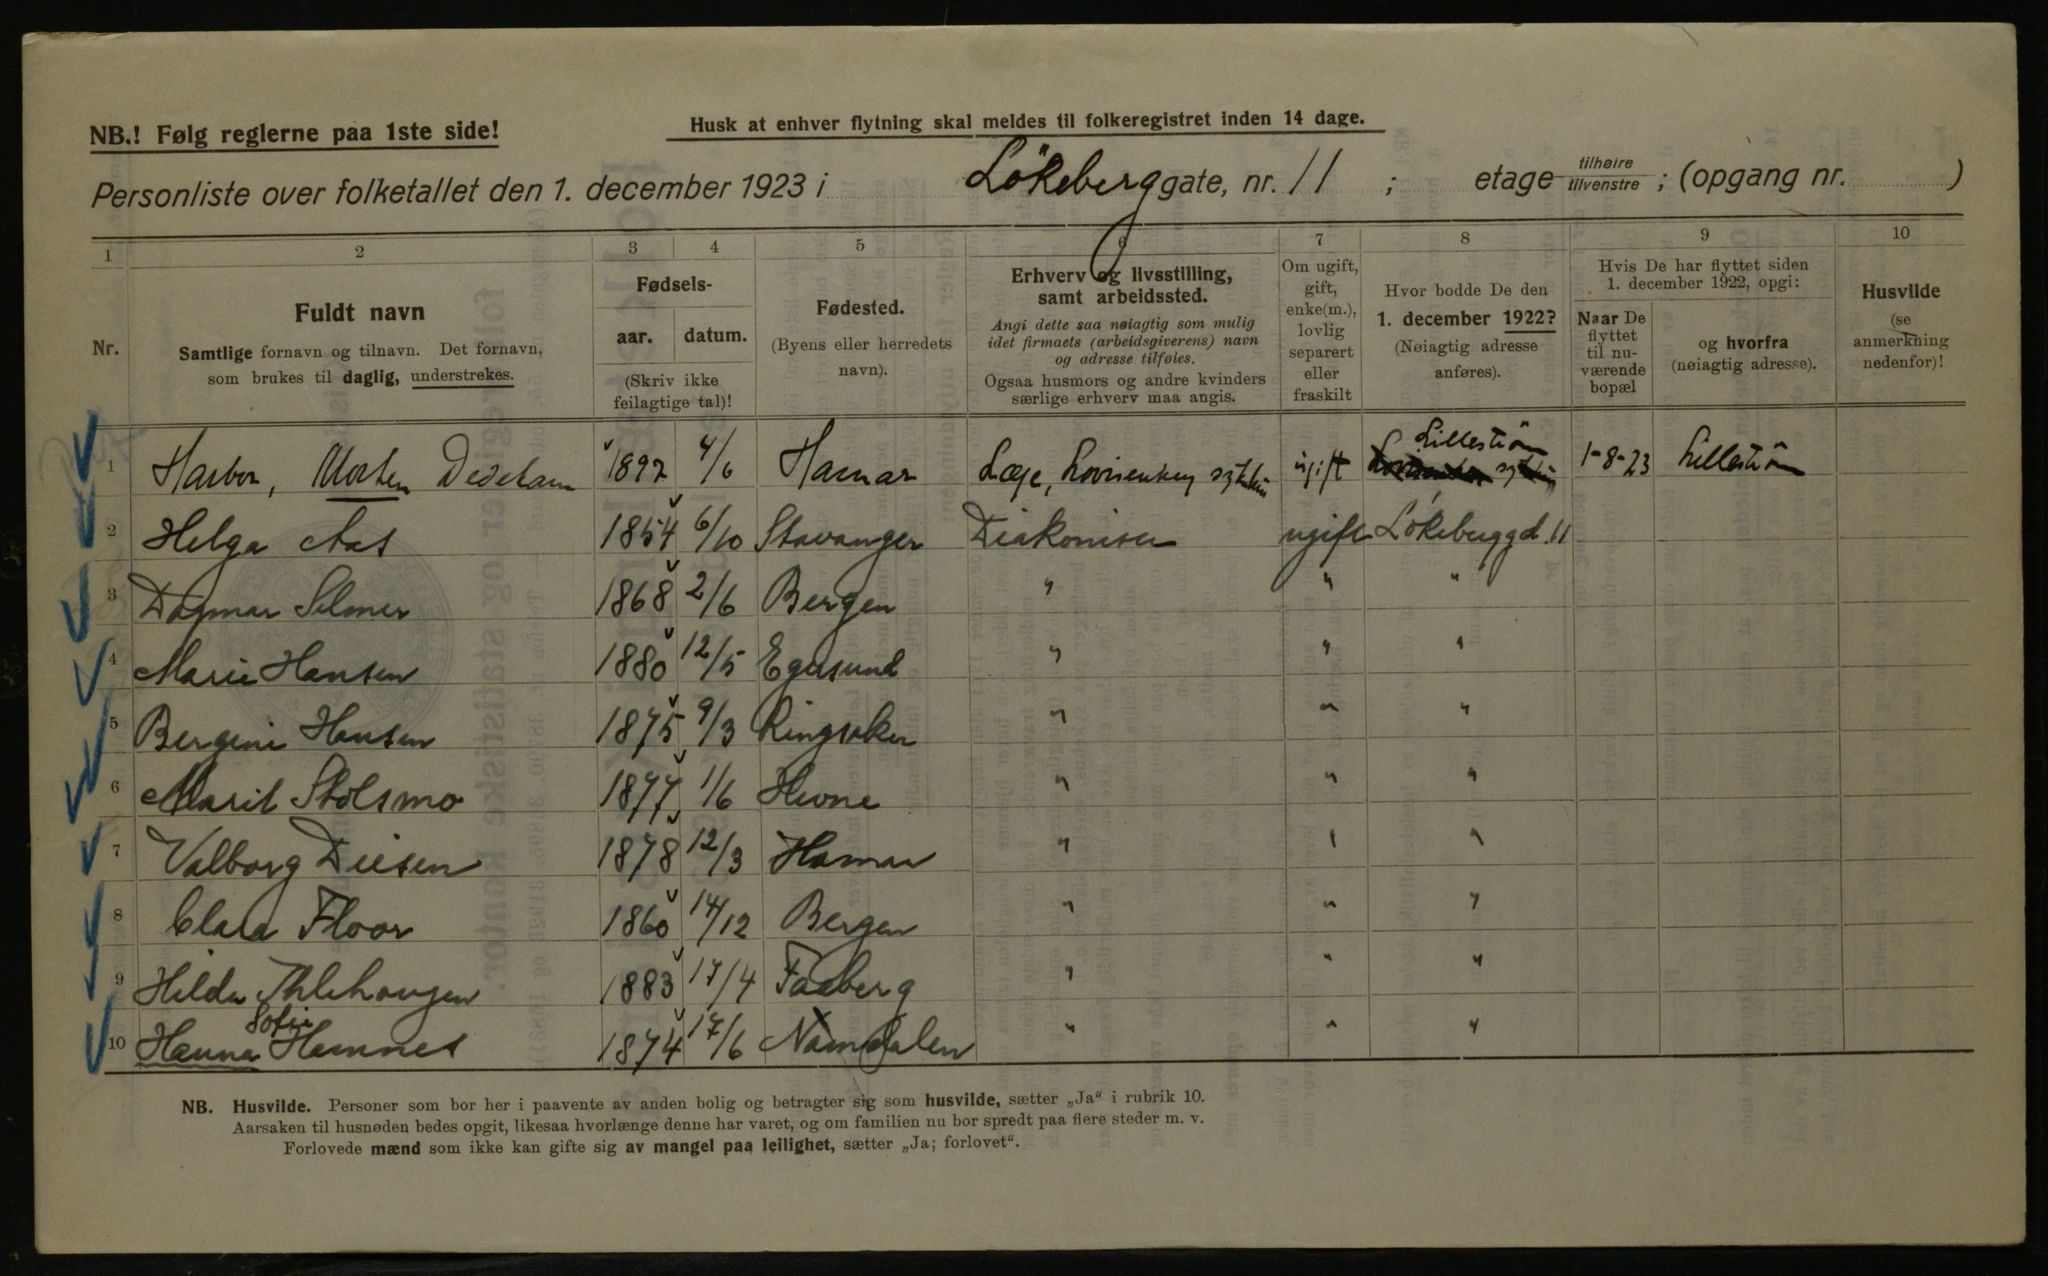 NB.! Følg reglerne paa 1ste side!
Husk at enhver flytning skal meldes til folkeregistret inden 14 dage.
Personliste over folketallet den 1. december 1923 i Lökeberg gate, nr. 11 ; etage tilhøire tilvenstre ; (opgang nr. )
1 2 3 4 5 6 7 8 9 10
Nr.
Fuldt navn
Samtlige fornavn og tilnavn. Det fornavn,
som brukes til daglig, understrekes.
Fødsels-
aar. datum.
(Skriv ikke
feilagtige tal)!
Fødested.
(Byens eller herredets
navn).
Erhverv og livsstilling,
samt arbeidssted.
Angi dette saa nøiagtig som mulig
idet firmaets (arbeidsgiverens) navn
og adresse tilføies.
Ogsaa husmors og andre kvinders
særlige erhverv maa angis.
Om ugift,
gift,
enke(m.),
lovlig
separert
eller
fraskilt
Hvor bodde De den
1. december 1922?
(Nøiagtig adresse
anføres).
Hvis De har flyttet siden
1. december 1922, opgi:
Naar De
flyttet
til nu-
værende
bopæl
og hvorfra
(nøiagtig adresse).
Husvilde
(se
anmerkning
nedenfor)!
1 Harbor, Morten Dedekam 1892 4/6 Hamar Læge, ugift Lilleström 1-8-23 Lilleström
2 Helga Aas 1854 6/10 Stavanger Diakonisse ugift Lökeberggd. 11
3 Dagmar Selmer 1868 2/6 Bergen " " "
4 Marie Hansen 1880 12/5 Egersund " " "
5 Bergine Hansen 1875 9/3 Ringsaker " " "
6 Marit Stölsmo 1877 1/6 Hevne " " "
7 Valborg Diesen 1878 12/3 Hamar " " "
8 Clara Floor 1860 14/12 Bergen " " "
9 Hilda 1883 17/4 Faaberg " " "
10 Hanna Sofie Hemnes 1874 17/6 Namdalen " " "
NB. Husvilde. Personer som bor her i paavente av anden bolig og betragter sig som husvilde, sætter „Ja“ i rubrik 10.
Aarsaken til husnøden bedes opgit, likesaa hvorlænge denne har varet, og om familien nu bor spredt paa flere steder m. v.
Forlovede mænd som ikke kan gifte sig av mangel paa leilighet, sætter „Ja; forlovet“.